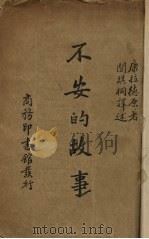 康拉德原著
關琪桐譯述
不安的故事
商務印書館發行